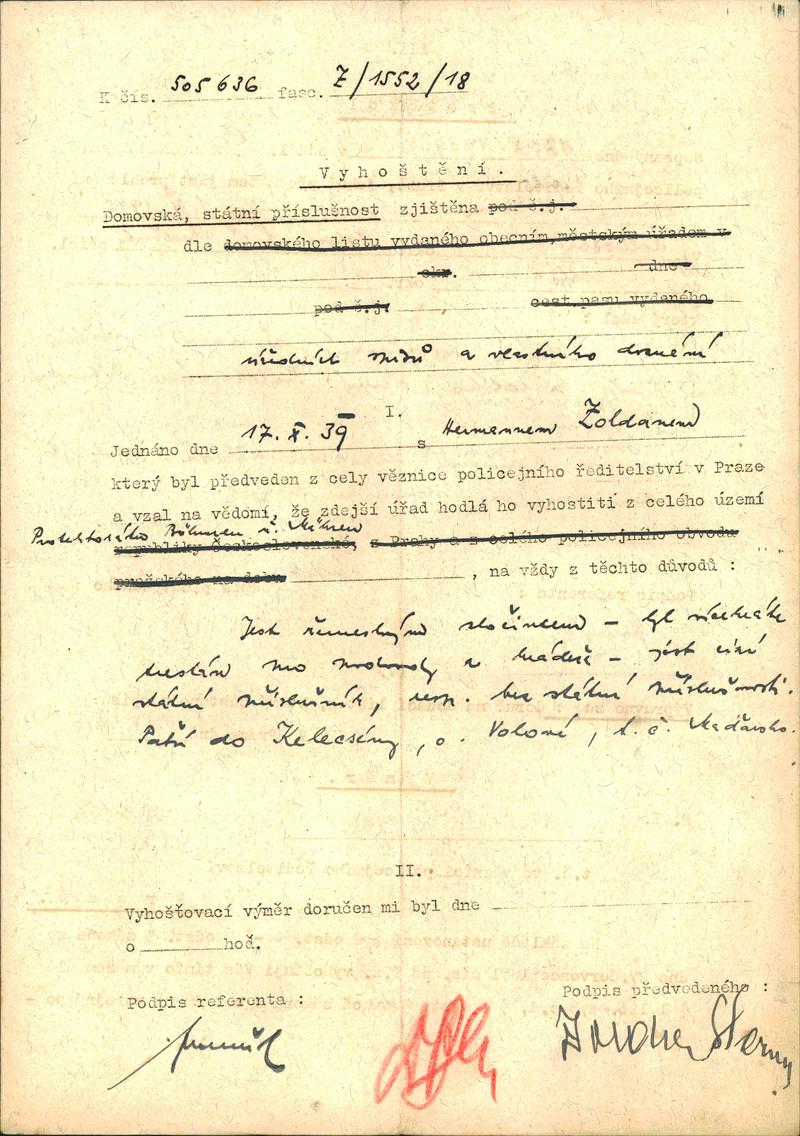 K čís. 505636 fasc. Z/1552/18
Vyhoštění.
Domovská, státní příslušnost zjištěna pod č.j.
dle domovského listu vydaného obecním, městským úřadem v
okr. dne
pod č.j. cest. pasu vydaného
úředních spisů a vlastního doznání
I.
Jednáno dne 17. X. 39 s Hermannem Zoldanem
který byl předveden z cely věznice policejního ředitelství v Praze
a vzal na vědomí, že zdejší úřad hodlá ho vyhostiti z celého území
Protektorátu Böhmen u. Mähren
republiky Československé, z Prahy a z celého policejního obvodu
pražského na dobu , na vždy z těchto důvodů :
Jest řemeslným zločincem – byl vícekráte
trestán pro podvody a krádež – jest cizí
státní příslušník, resp. bez státní příslušnosti.
Patří do Kelecsény, o. Volové, t. č. Maďarsko.
II.
Vyhošťovací výměr doručen mi byl dne
o hod.
Podpis referenta :
Podpis předvedeného :